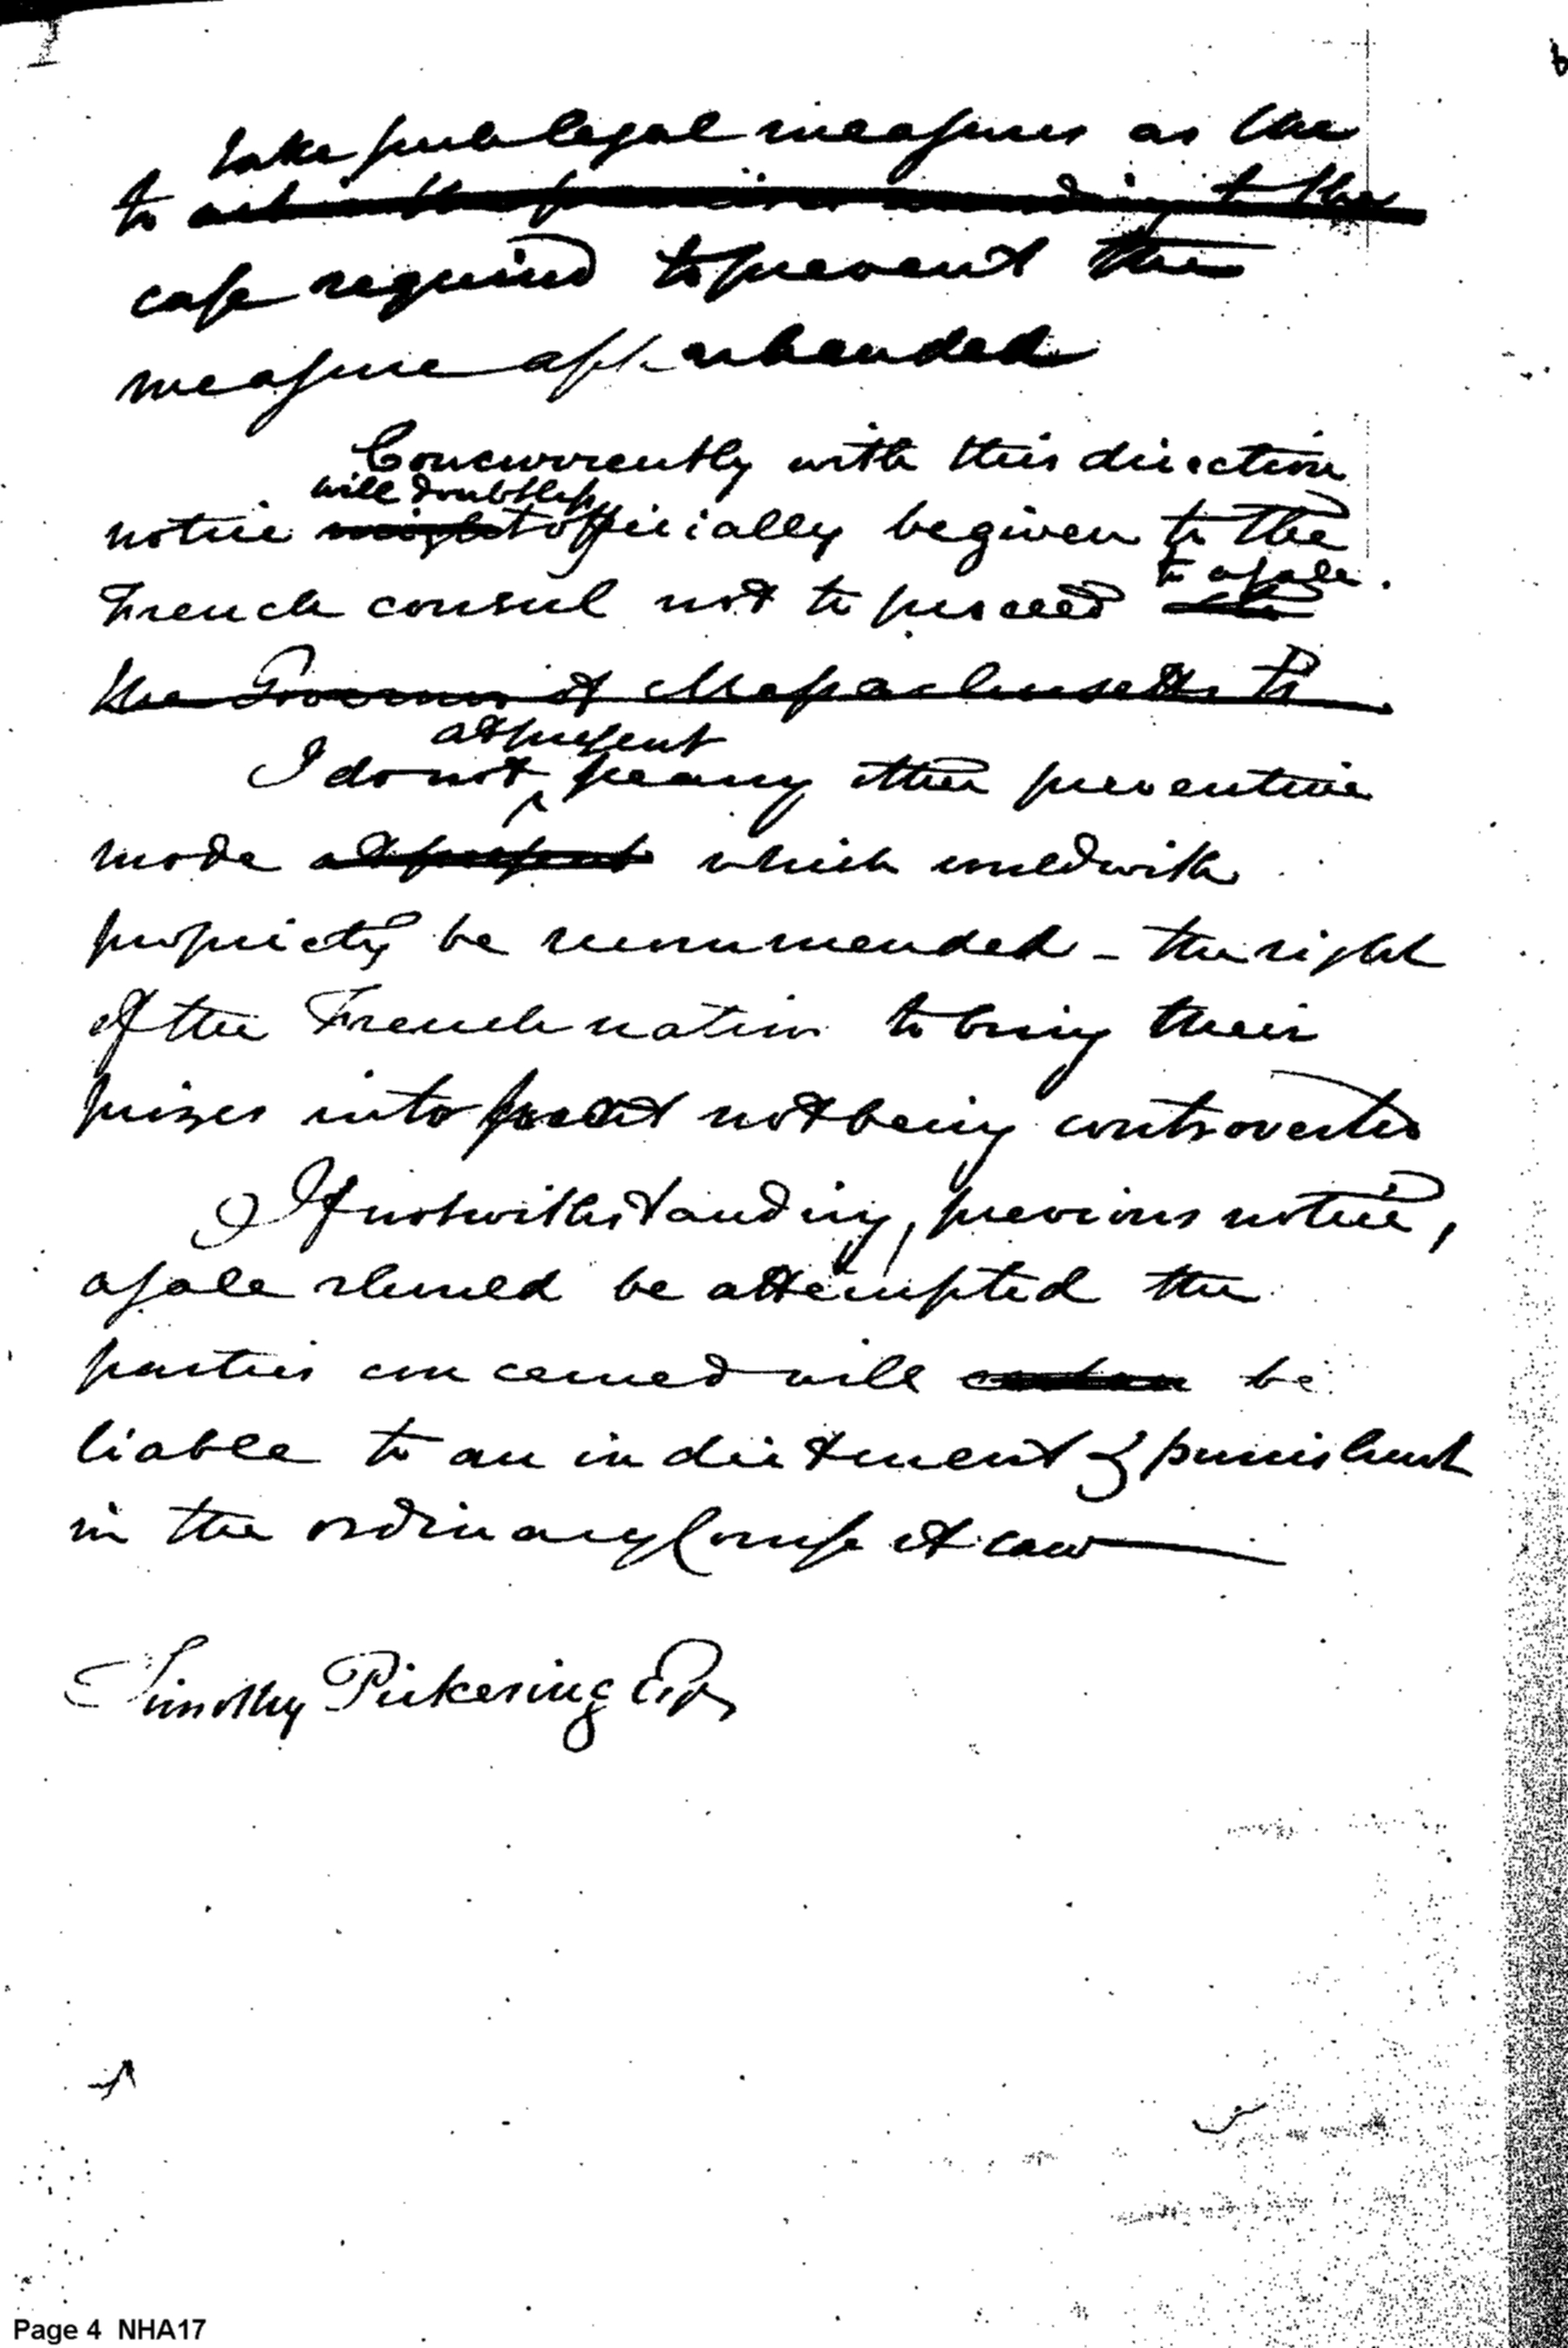 take such legal measures as the
to act in the premises according to the
case required to prevent the
measure apprehended
Concurrently with this direction
will doubtless
notice might officially be given to the
to a sale.
French consul not to proceed
the Governor of Massachusetts to
at present
I do not ^ see any other preventive
mode at present which could with
propriety be recommended – the right
of the French nation to bring their
prizes into port not being controverted
If notwithstanding, previous notice,
a sale should be attempted the
parties concerned will be
liable to an indictment & punishment
in the ordinary Course of law
Timothy Pickering Esq
Page 4 NHA17